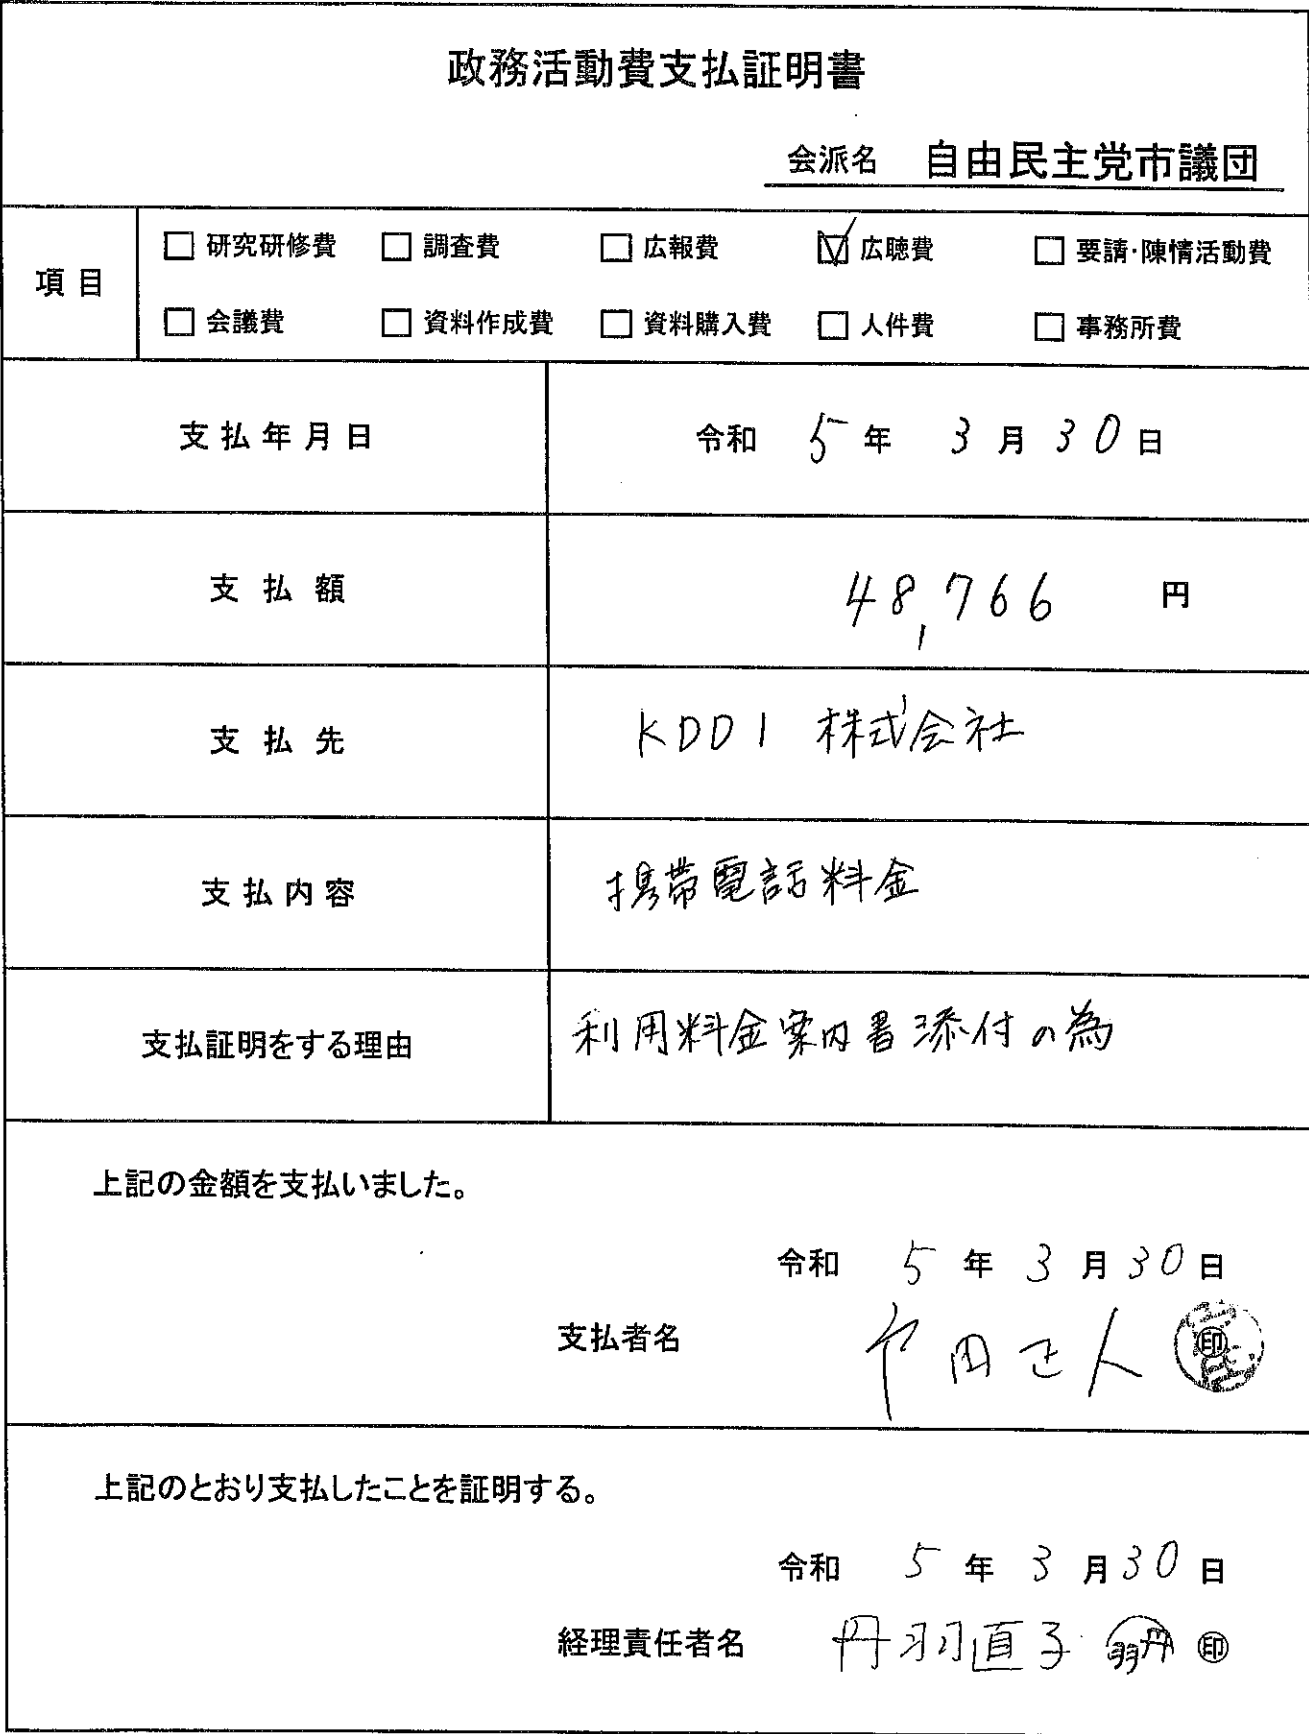 政務活動費支払証明書
会派名 自由民主党市議団
項目
□ 研究研修費 □ 調査費 □ 広報費 ☑ 広聴費 □ 要請・陳情活動費
□ 会議費 □ 資料作成費 □ 資料購入費 □ 人件費 □ 事務所費
支払年月日 令和 5 年 3 月 30 日
支払額 48,766 円
支払先 KDDI 株式会社
支払内容 携帯電話料金
支払証明をする理由 利用料金案内書添付の為
上記の金額を支払いました。
令和 5 年 3 月 30 日
支払者名 田正人 印
上記のとおり支払したことを証明する。
令和 5 年 3 月 30 日
経理責任者名 丹羽直子 丹羽 印